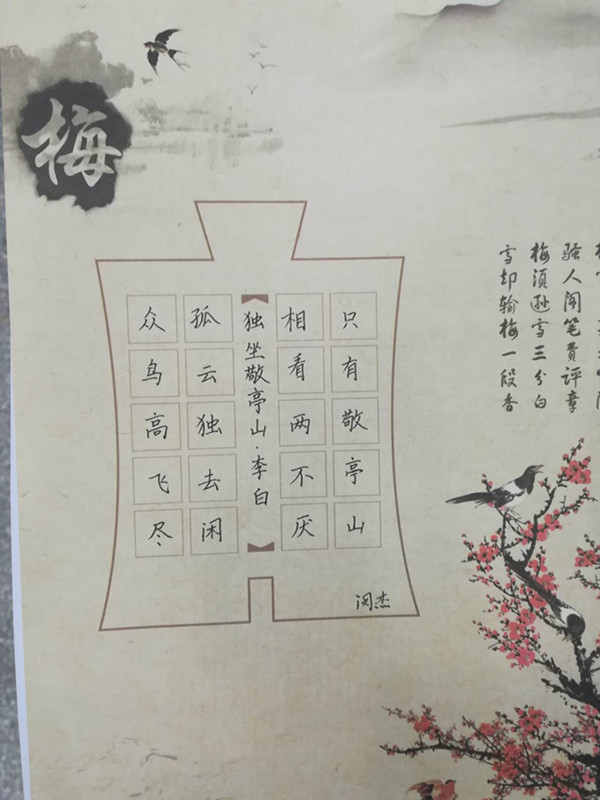 梅
众鸟高飞尽
孤云独去闲
独坐敬亭山·李白
相看两不厌
只有敬亭山
闵杰
骚人阁笔费评章
梅须逊雪三分白
雪却输梅一段香